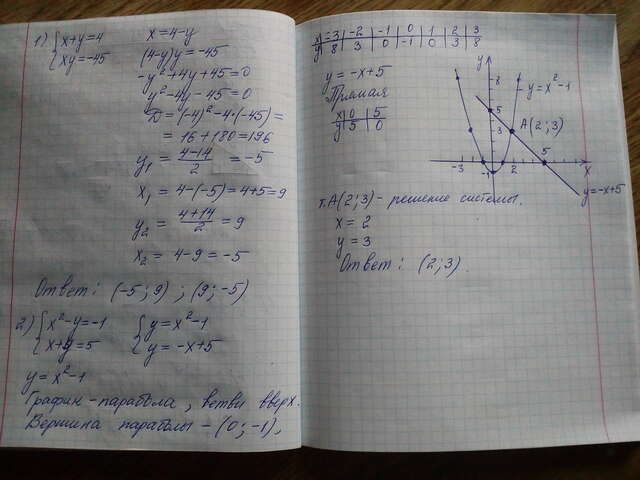 1) { x+y=4      x=4-y
{ xy=-45      (4-y)y=-45
-y²+4y+45=0
y²-4y-45=0
D=(-4)²-4·(-45)=
=16+180=196
y₁ = (4-14)/2 = -5
x₁ = 4-(-5)=4+5=9
y₂ = (4+14)/2 = 9
x₂ = 4-9=-5
Ответ: (-5; 9) ; (9; -5)
2) { x²-y=-1      { y=x²-1
{ x+y=5      { y=-x+5
y=x²-1
График-парабола, ветви вверх.
Вершина параболы - (0; -1),
x | -3 | -2 | -1 | 0 | 1 | 2 | 3
y | 8 | 3 | 0 | -1 | 0 | 3 | 8
y=-x+5
Прямая
x | 0 | 5
y | 5 | 0
y
8
y=x²-1
5
3
A(2;3)
-3
-1
2
5
x
y=-x+5
т.A(2;3)- решение системы.
x=2
y=3
Ответ: (2;3).